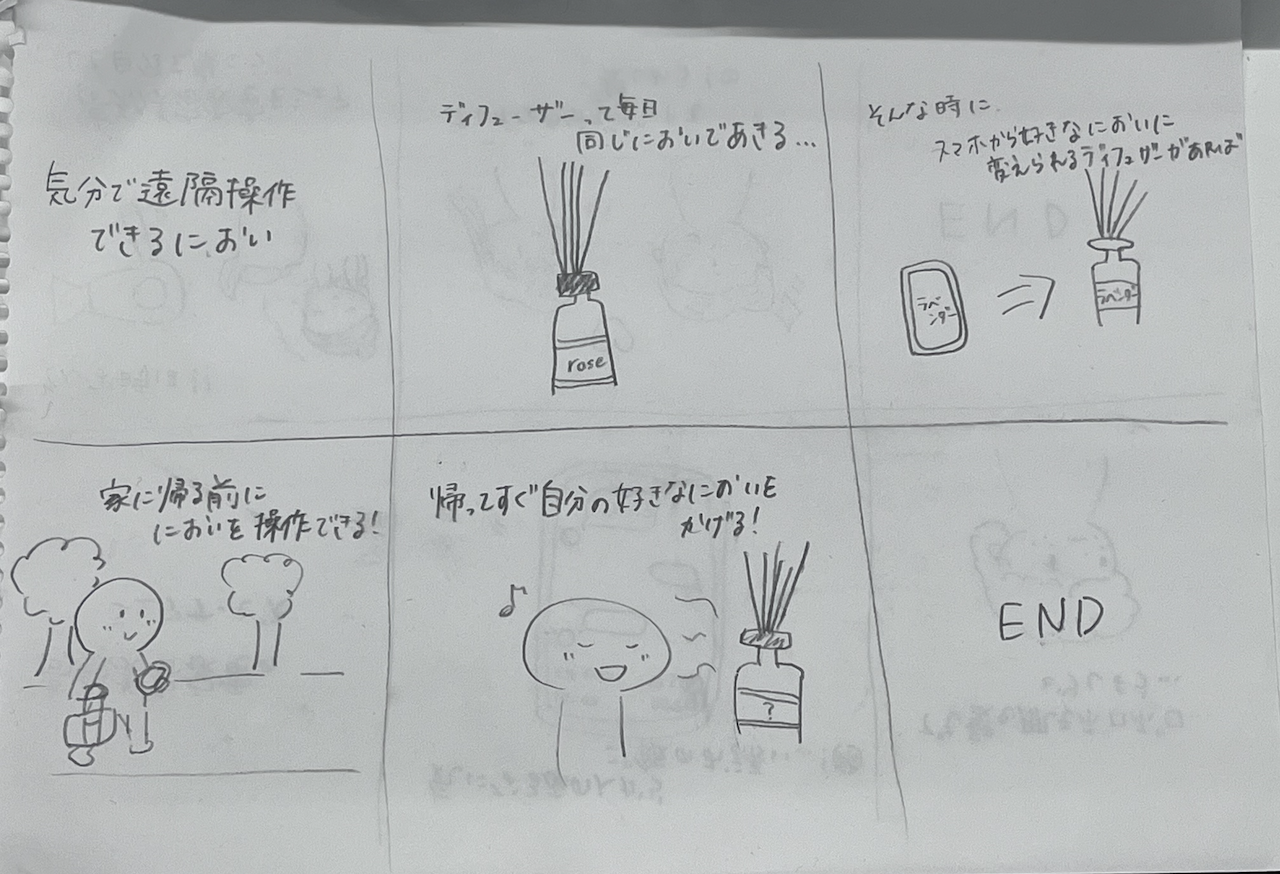 気分で遠隔操作
できるにおい
ディフューザーって毎日
同じにおいであきる…
rose
そんな時に
スマホから好きなにおいに
変えられるディフューザーがあれば
ラベ
ンダー
ラベンダー
家に帰る前に
においを操作できる!
帰ってすぐ自分の好きなにおいを
かげる!
♪
?
END